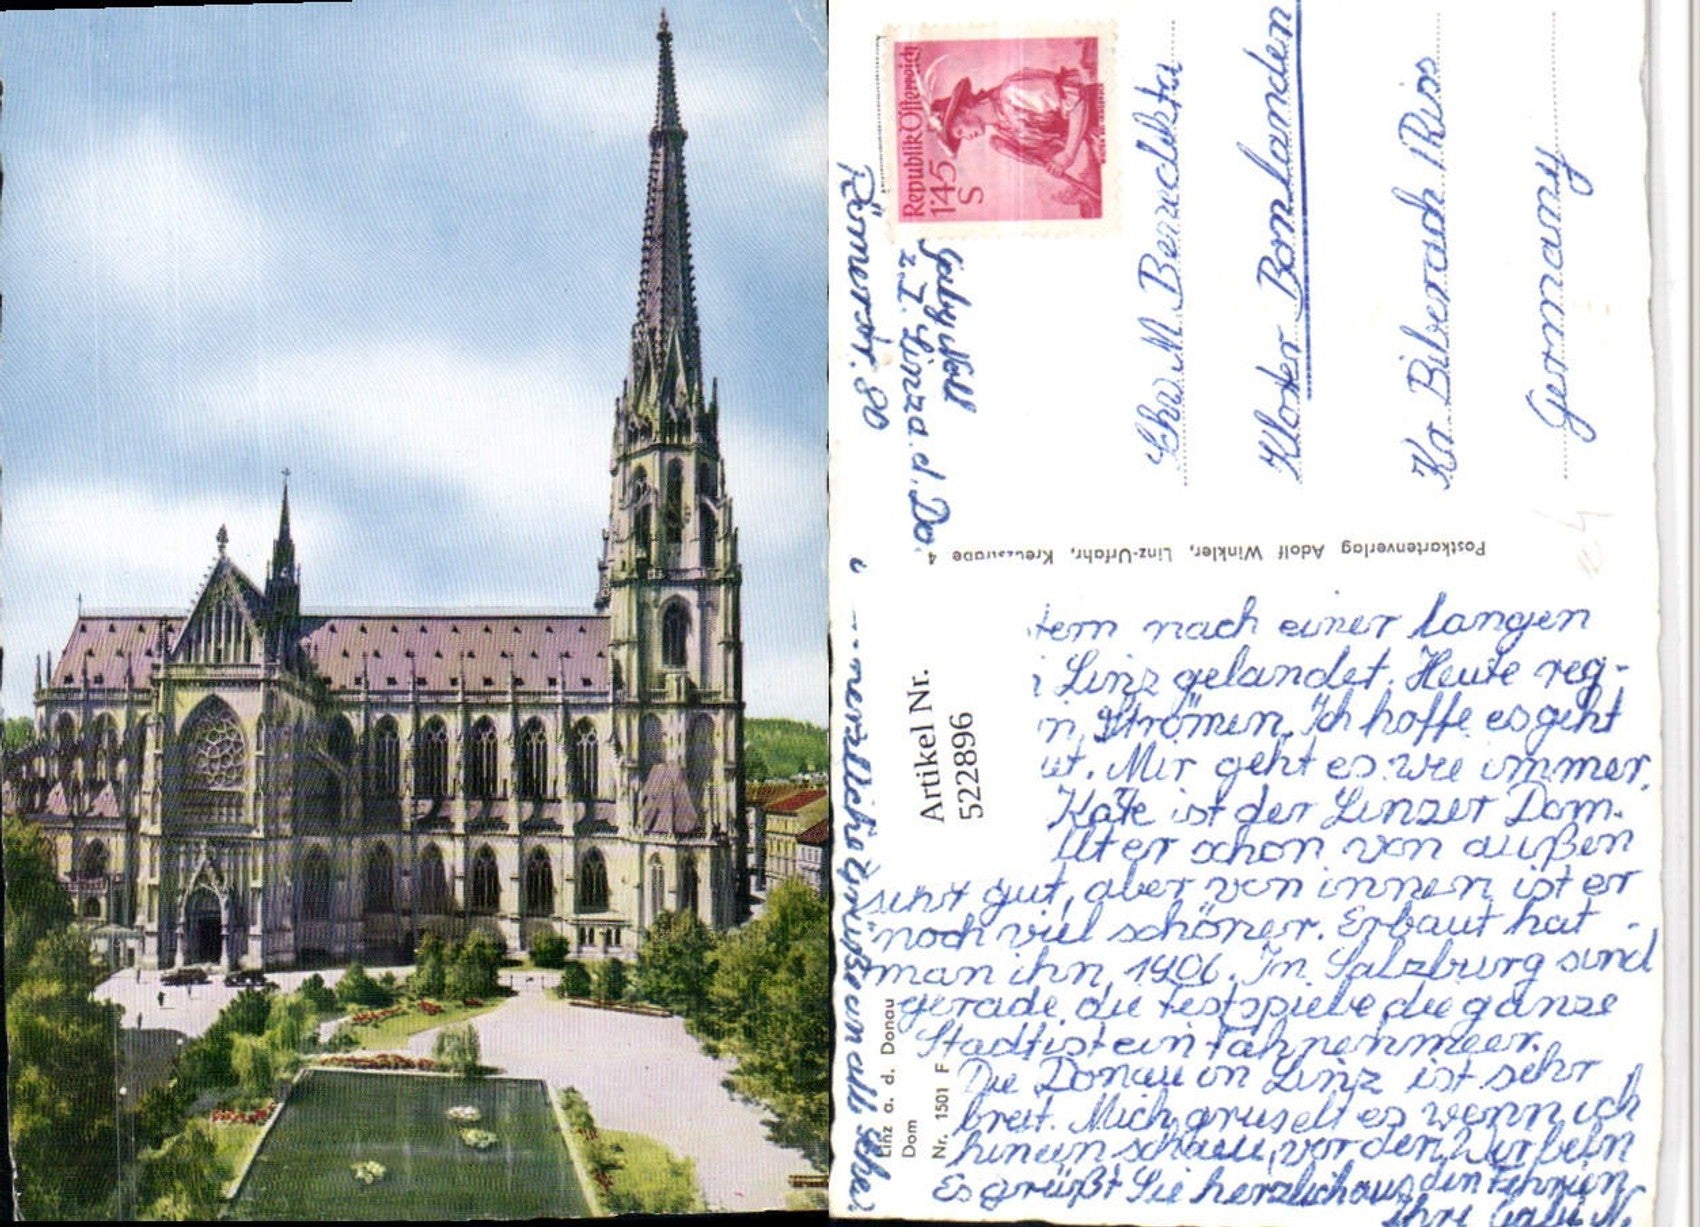 Republik Österreich
1'45
S
z. Z. Linz a. d. Do.
Römerstr. 80
Kloster Bonlanden
Kr Biberach / Riss
Germany
Postkartenverlag Adolf Winkler, Linz-Urfahr, Kreuzstraße 4
Artikel Nr.
522896
Linz a. d. Donau
Dom
Nr. 1501 F
tern nach einer langen
Linz gelandet. Heute reg-
n Strömen. Ich hoffe es geht
ut. Mir geht es wie immer.
Karte ist der Linzer Dom.
er schon von außen
sehr gut, aber von innen ist er
noch viel schöner. Erbaut hat
man ihn 1906. In Salzburg sind
gerade die Festspiele die ganze
Stadt ist ein Fahnenmeer.
Die Donau in Linz ist sehr
breit. Mich gruselt es wenn ich
hinein schaue, vor den Wirbeln
Es grüßt Sie herzlich aus den Ferien
Ihre